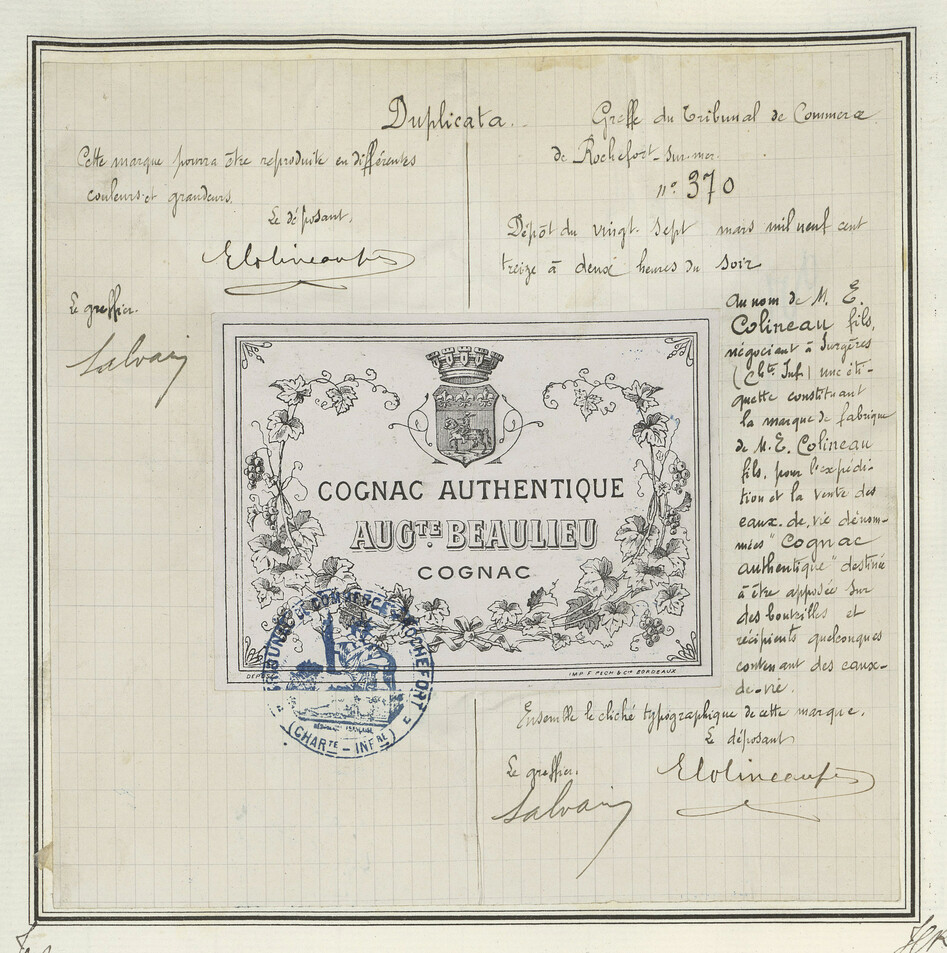 Duplicata.
Cette marque pourra être reproduite en différentes
couleurs et grandeurs.
Le déposant,
EColineaufils
Le greffier.
Salvain
Greffe du Tribunal de Commerce
de Rochefort-sur-mer.
n° 370
Dépôt du vingt-sept mars mil neuf cent
treize à deux heures du soir
Au nom de M. E.
Colineau fils,
négociant à Surgères
(Chte Inf.) une éti-
quette constituant
la marque de fabrique
de M. E. Colineau
fils, pour l'expédi-
tion et la vente des
eaux-de-vie dénom-
mées "Cognac
authentique" destinée
à être apposée sur
des bouteilles et
récipients quelconques
contenant des eaux-
de-vie.
COGNAC AUTHENTIQUE
AUGTE. BEAULIEU
COGNAC
DEP
IMP. F. PECH & CIE BORDEAUX
TRIBUNAL DE COMMERCE ROCHEFORT
RÉPUBLIQUE FRANÇAISE
(CHARTE - INFRE)
Ensemble le cliché typographique de cette marque.
Le déposant
EColineaufils
Le greffier.
Salvain